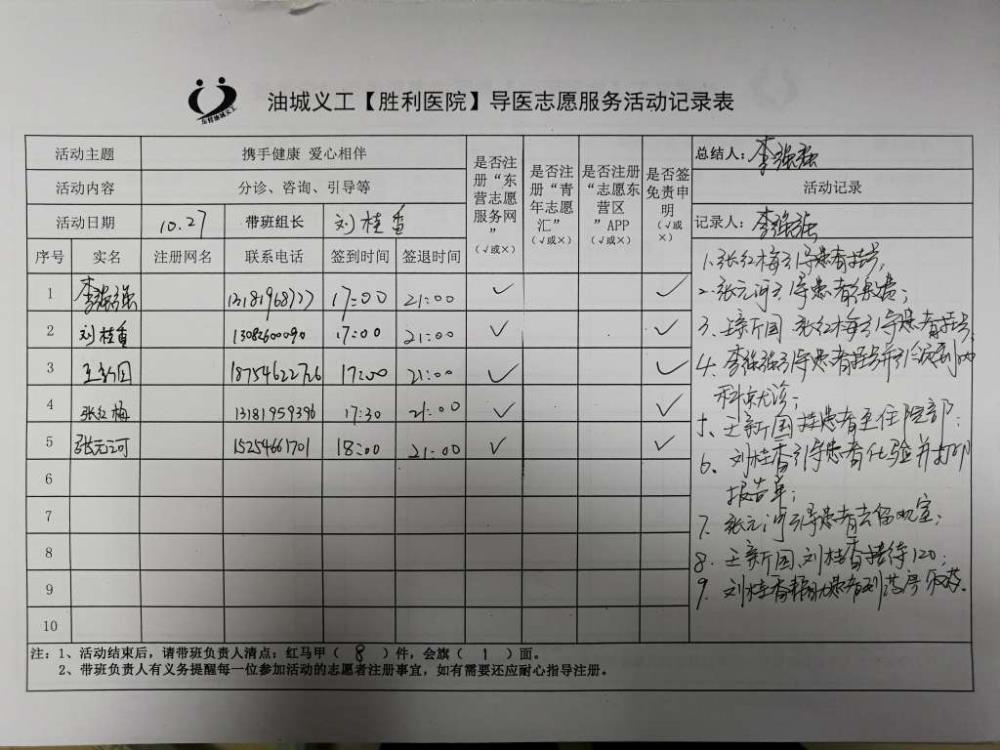 东营油城义工
油城义工【胜利医院】导医志愿服务活动记录表
活动主题 携手健康 爱心相伴
活动内容 分诊、咨询、引导等
活动日期 10.27 带班组长 刘桂香
序号 实名 注册网名 联系电话 签到时间 签退时间
是否注册“东营志愿服务网”（√或×）
是否注册“青年志愿汇”（√或×）
是否注册“志愿东营区”APP（√或×）
是否签免责申明（√或×）
1 李强强 17:00 21:00 √ √
2 刘桂香 13082600090 17:00 21:00 √ √
3 王新国 18754622726 17:00 21:00 √ √
4 张红梅 13181959396 17:30 21:00 √ √
5 张元河 15254661701 18:00 21:00 √ √
6
7
8
9
10
总结人：李强强
活动记录
记录人：李强强
1.张红梅引导患者挂号，
2.张元河引导患者缴费；
3.王新国 张红梅引导患者挂号，
4.李强强引导患者挂号并引领到
科室就诊；
5、王新国推患者至住院部；
6、刘桂香引导患者化验并打印
报告单；
7、张元河引导患者去留观室；
8.王新国、刘桂香接待120；
9.刘桂香帮助患者到药房取药.
注：1、活动结束后，请带班负责人清点：红马甲（ 8 ）件，会旗（ 1 ）面。
2、带班负责人有义务提醒每一位参加活动的志愿者注册事宜，如有需要还应耐心指导注册。